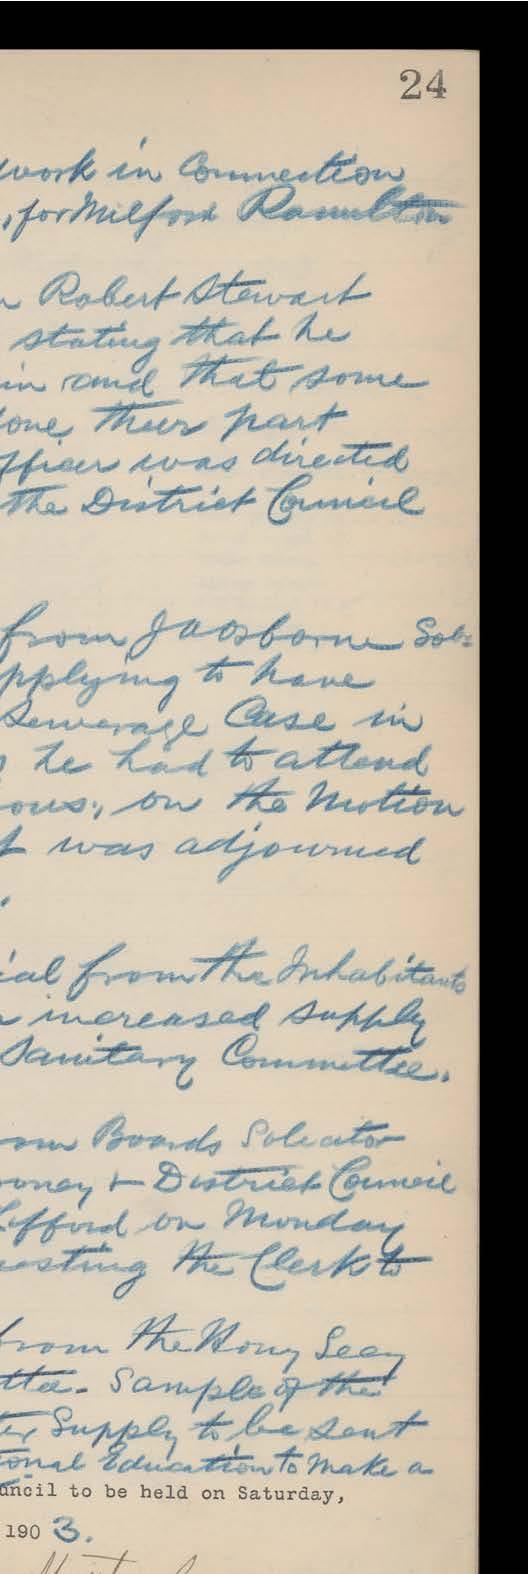 24
work in Connection
, for Milford Ramelton
Robert Stewart
stating that he
in and that some
done their part
Officer was directed
the District Council
from J A Osborne Sol:
applying to have
Sewerage Case in
he had to attend
ous, on the Motion
was adjourned
ial from the Inhabitants
increased supply
Sanitary Committee.
om Boards Solicitor
ooney & District Council
Lifford on Monday
uesting the Clerk to
from the Hony Secy
ttee. Sample of the
ter Supply to be sent
ional Education to Make a
uncil to be held on Saturday,
190 3.